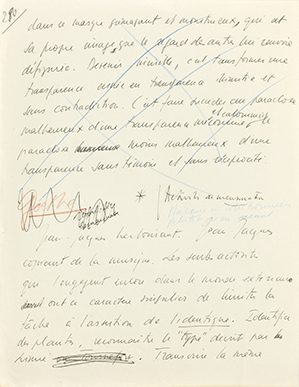 280
dans ce masque grimaçant et monstrueux, que est
sa propre image que le regard des autres lui renvoie
défigurée. Devenir invisible, c'est transformer une
transparence en une transparence illimitée et
sans contradiction. C'est faire succéder au paradoxe
malheureux d'une transparence méconnue et calomniée le
paradoxe moins malheureux d'une
transparence sans témoins et sans réciprocité.
*
Activités de
Jean-Jacques herborisant. Jean-Jacques
copiant de la musique. Les seules activités
qui l'engagent encore dans le monde extérieur
ont ce caractère singulier de limiter la
tâche à l'assertion de l'identique. Identifier
des plantes, reconnaître le "type" décrit par
Linné. Transcrire la même